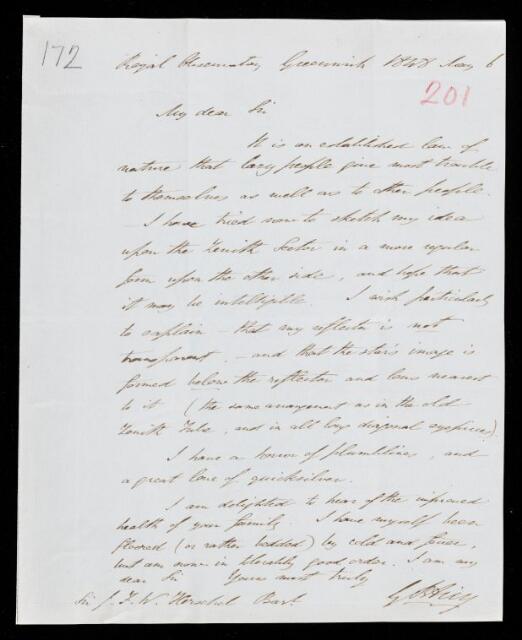 172
Royal Observatory, Greenwich 1848 May 6
201
My dear Sir
It is an established law of
nature that lazy people give most trouble
to themselves as well as to other people.
I have tried now to sketch my idea
upon the Zenith Sector in a more regular
form upon the other side, and hope that
it may be intelligible. I wish particularly
to explain – that my reflector is not
transparent, – and that the star's image is
formed below the reflector and lens nearest
to it (the same arrangement as in the old
Zenith Tube, and in all long diagonal eyepieces).
I have a horror of plumblines, and
a great love of quicksilver.
I am delighted to hear of the improved
health of your family. I have myself been
floored (or rather bedded) by cold and fever,
but am now in tolerably good order. I am my
dear Sir Yours most truly
G B Airy
Sir J. F. W. Herschel Bart